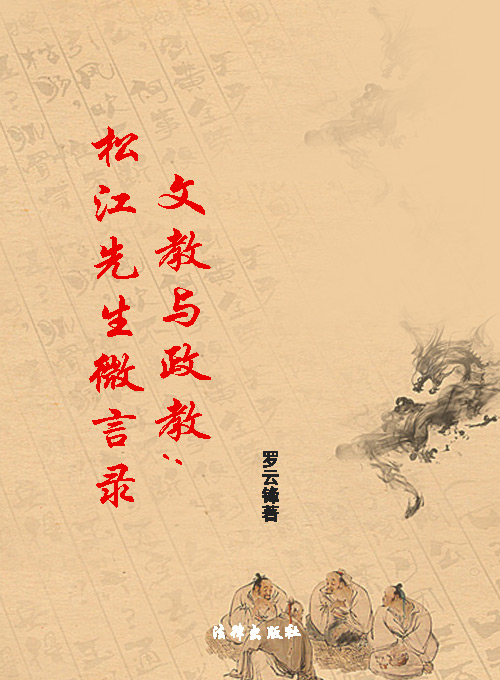 文教与政教：
松江先生微言录
罗云锋著
法律出版社